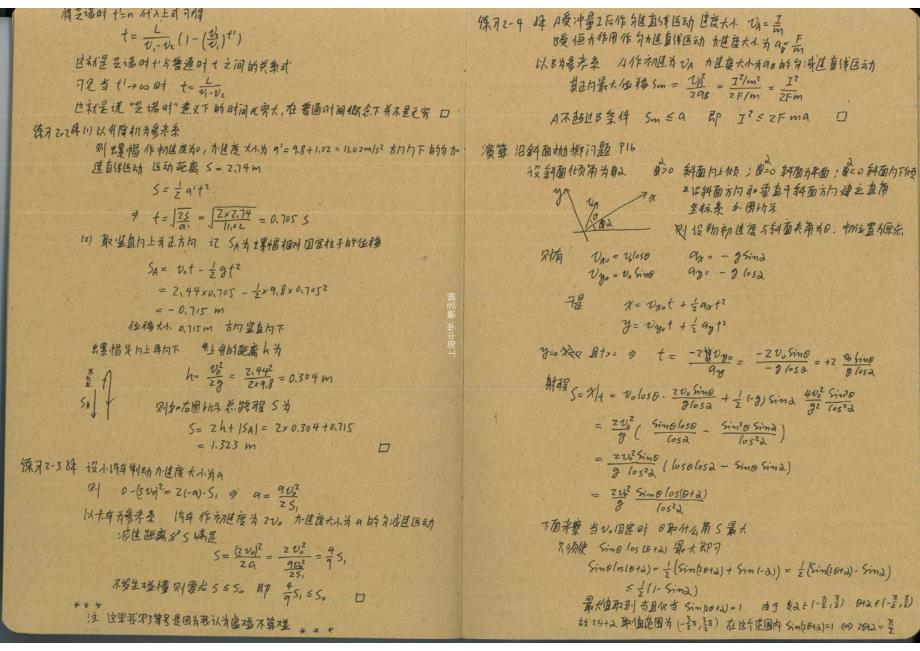 将芝诺时 t'=n 代入上式可得
t = L/(v₁-v₂) (1-(v₂/v₁)^t')
这就是芝诺时t'与普通时t之间的关系式
可见当 t'→∞ 时 t = L/(v₁-v₂)
这就是说"芝诺时"意义下的时间无穷大,在普通时间概念下并不是无穷 □
练习2-2解 (1) 以升降机为参考系
则螺帽作初速度为0,加速度大小为 a'=9.8+1.22=11.02m/s² 方向向下的匀加
速直线运动 运动距离 S=2.74m
S = ½a't²
⇒ t = √(2S/a') = √(2×2.74/11.02) = 0.705 S
(2) 取竖直向上为正方向 记 S_A为螺帽相对固定柱子的位移
S_A = v₀t - ½gt²
= 2.44×0.705 - ½×9.8×0.705²
= -0.715 m
位移大小 0.715m 方向竖直向下
螺帽先向上再向下 上升的距离h为
h = v₀²/2g = 2.44²/(2×9.8) = 0.304 m
则如右图所示 总路程S为
S = 2h+|S_A| = 2×0.304+0.715
= 1.323 m □
练习2-3解 设小汽车制动加速度大小为a
则 0-(3v₀)²=2(-a)·S₁ ⇒ a = 9v₀²/2S₁
以卡车为参考系 汽车作初速度为2v₀ 加速度大小为a的匀减速运动
减速距离 S 满足
S = (2v₀)²/2a = 2v₀²/(9v₀²/2S₁) = 4/9 S₁
不发生碰撞则需 S≤S₀ 即 4/9 S₁≤S₀ □
* * *
注 这里我写了等号是因为我认为 不算碰
* * *
练习2-4 解 A受冲量I后作匀速直线运动 速度大小 v_A = I/m
B受恒力作用作匀加速直线运动 加速度大小为 a_B = F/m
以B为参考系 A作初速为v_A 加速度大小为a_B的匀减速直线运动
其正向最大位移 S_m = v_A²/2a_B = (I²/m²)/(2F/m) = I²/2Fm
A不超过B条件 S_m≤a 即 I²≤2Fma □
演算 沿斜面抛射问题 P16
设斜面倾角为α α>0 斜面向上倾; α=0 斜面为平面; α<0 斜面向下倾
沿斜面方向和垂直于斜面方向建立直角
坐标系 如图所示
y x v₀ θ α
则设物初速度与斜面夹角为θ, 初位置为原点
则有 v_x0 = v₀cosθ a_x = -gsinα
v_y0 = v₀sinθ a_y = -gcosα
于是 x = v_x0 t + ½a_x t²
y = v_y0 t + ½a_y t²
y=0 且t>0 ⇒ t = -2v_y0/a_y = -2v₀sinθ/(-gcosα) = +2 v₀sinθ/(gcosα)
射程 S = x|t = v₀cosθ · 2v₀sinθ/(gcosα) + ½(-g)sinα 4v₀²/g² sin²θ/cos²α
= 2v₀²/g (sinθcosθ/cosα - sin²θsinα/cos²α)
= 2v₀²sinθ/(g cos²α) (cosθcosα - sinθsinα)
= 2v₀²/g sinθcos(θ+α)/cos²α
下面来察 当v₀固定时 θ取什么角 S最大
只须使 sinθcos(θ+α) 最大即可
sinθcos(θ+α) = ½(sin(2θ+α)+sin(-α)) = ½(sin(2θ+α)-sinα)
≤ ½(1-sinα)
最大值取到 当且仅当 sin(2θ+α)=1 由于 α∈(-π/2, π/2) θ+α∈(-π/2, π/2)
故 2θ+α 取值范围为 (-3/2π, 3/2π) 在这个范围内 sin(2θ+α)=1 ⇔ 2θ+α=π/2